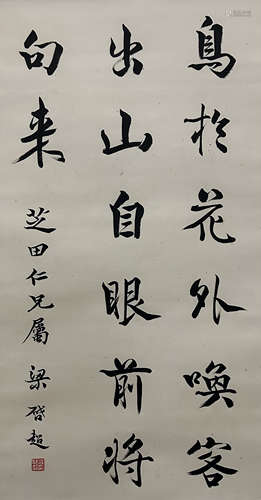 鳥於花外喚客
出山自眼前將
句来
芝田仁兄屬 梁啓超